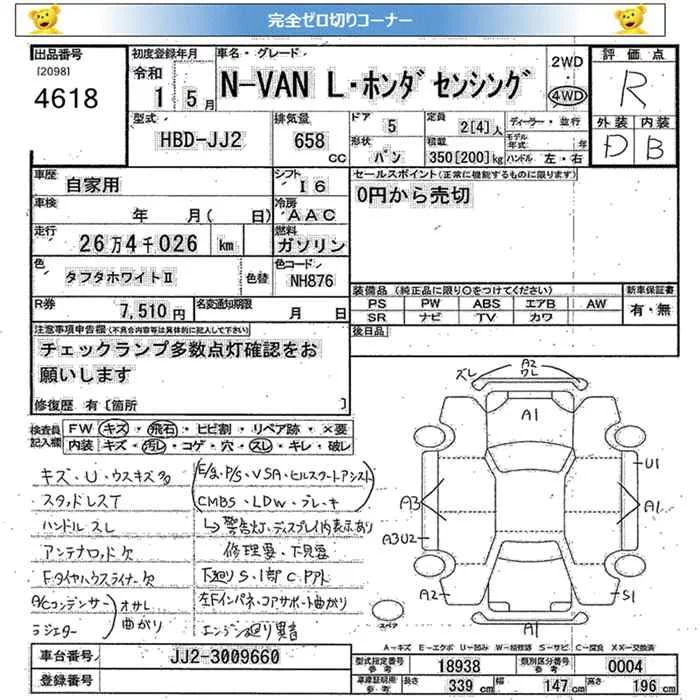 完全ゼロ切りコーナー
出品番号
[2098]
4618
初度登録年月
令和
1 5月
車名・グレード
N-VAN L・ホンダセンシング
2WD
・
4WD
評価点
R
外装 内装
D B
型式
HBD-JJ2
排気量
658
CC
ドア
5
形状
バン
定員
2[4]人
積載
350[200]kg
ディーラー・並行
モデル年式 年
ハンドル 左・右
車歴
自家用
シフト
I6
セールスポイント(正常に機能するものに限ります)
0円から売切
車検
年 月( 日)
冷房
AAC
走行
26万4千026 km
燃料
ガソリン
色
タフタホワイトⅡ
色替
色コード
NH876
装備品(純正品に限り○をつけてください)
PS PW ABS エアB AW
SR ナビ TV カワ
新車保証書
有・無
R券
7,510円
名変通知期限
月 日
後日品
注意事項申告欄(不具合内容等は具体的に記入して下さい)
チェックランプ多数点灯確認をお
願いします
修復歴 有[箇所 ]
検査員
記入欄
FW キズ・飛石・ヒビ割・リペア跡・×要
内装 キズ・汚レ・コゲ・穴・スレ・キレ・破レ
キズ・U・ウスキズ多
スタッドレスT
ハンドルスレ
アンテナロッド欠
F.タイヤハウスライナー欠
A/Cコンデンサー
ラジエター
オサレ
曲がり
E/g・P/S・VSA・ヒルスタートアシスト
CMBS・LDW・ブレーキ
↳警告灯、ディスプレイ内表示あり
修理要・下見要
下廻りS・1部C・
左Fインパネ・コアサポート曲がり
エンジン廻り異音
ズレ
A2
ワレ
A1
U1
A3
A1
A3U2
A2
S1
A1
スペア
A-キズ E-エクボ U-凹み W-板修跡 S-サビ C-腐食 XX-交換済
車台番号
JJ2-3009660
登録番号
型式指定番号
参考
18938
類別区分番号
参考
0004
車庫証明用
参考
長さ
339cm
幅
147cm
高さ
196cm